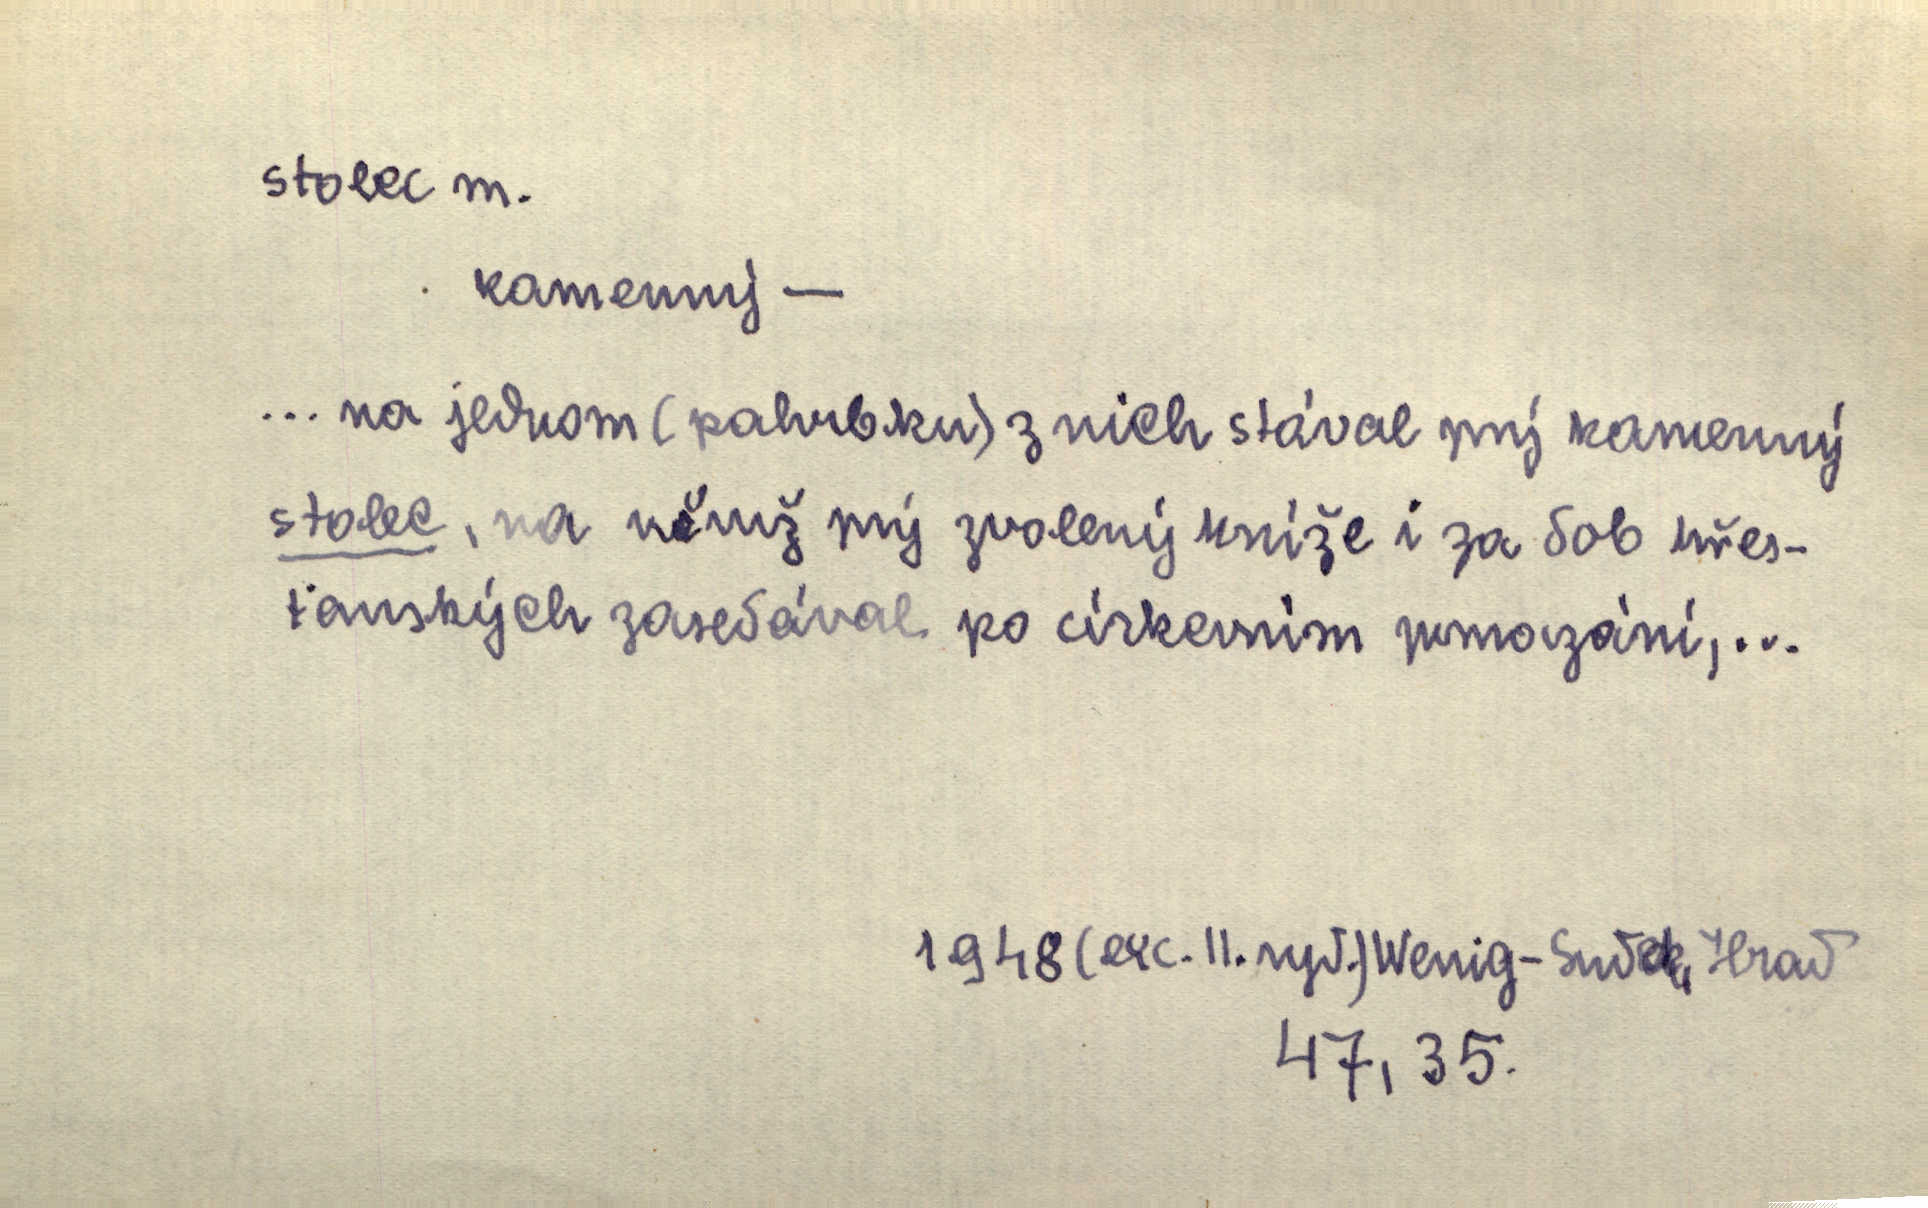 stolec m.
kamenný —
... na jednom (pahrbku) z nich stával prý kamenný
stolec, na němž prý zvolený kníže i za dob křes-
ťanských zasedával po církevním pomazání, ...
1948 (exc. II. vyd.) Wenig-Sudek, Hrad
47, 35.